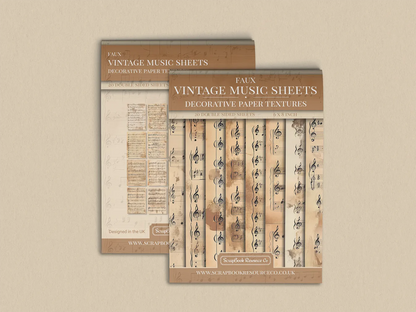 FAUX
VINTAGE MUSIC SHEETS
DECORATIVE PAPER TEXTURES
Designed in the UK
WWW.SCRAPBOOK
FAUX
VINTAGE MUSIC SHEETS
DECORATIVE PAPER TEXTURES
ScrapBook Resource Co
WWW.SCRAPBOOKRESOURCECO.CO.UK